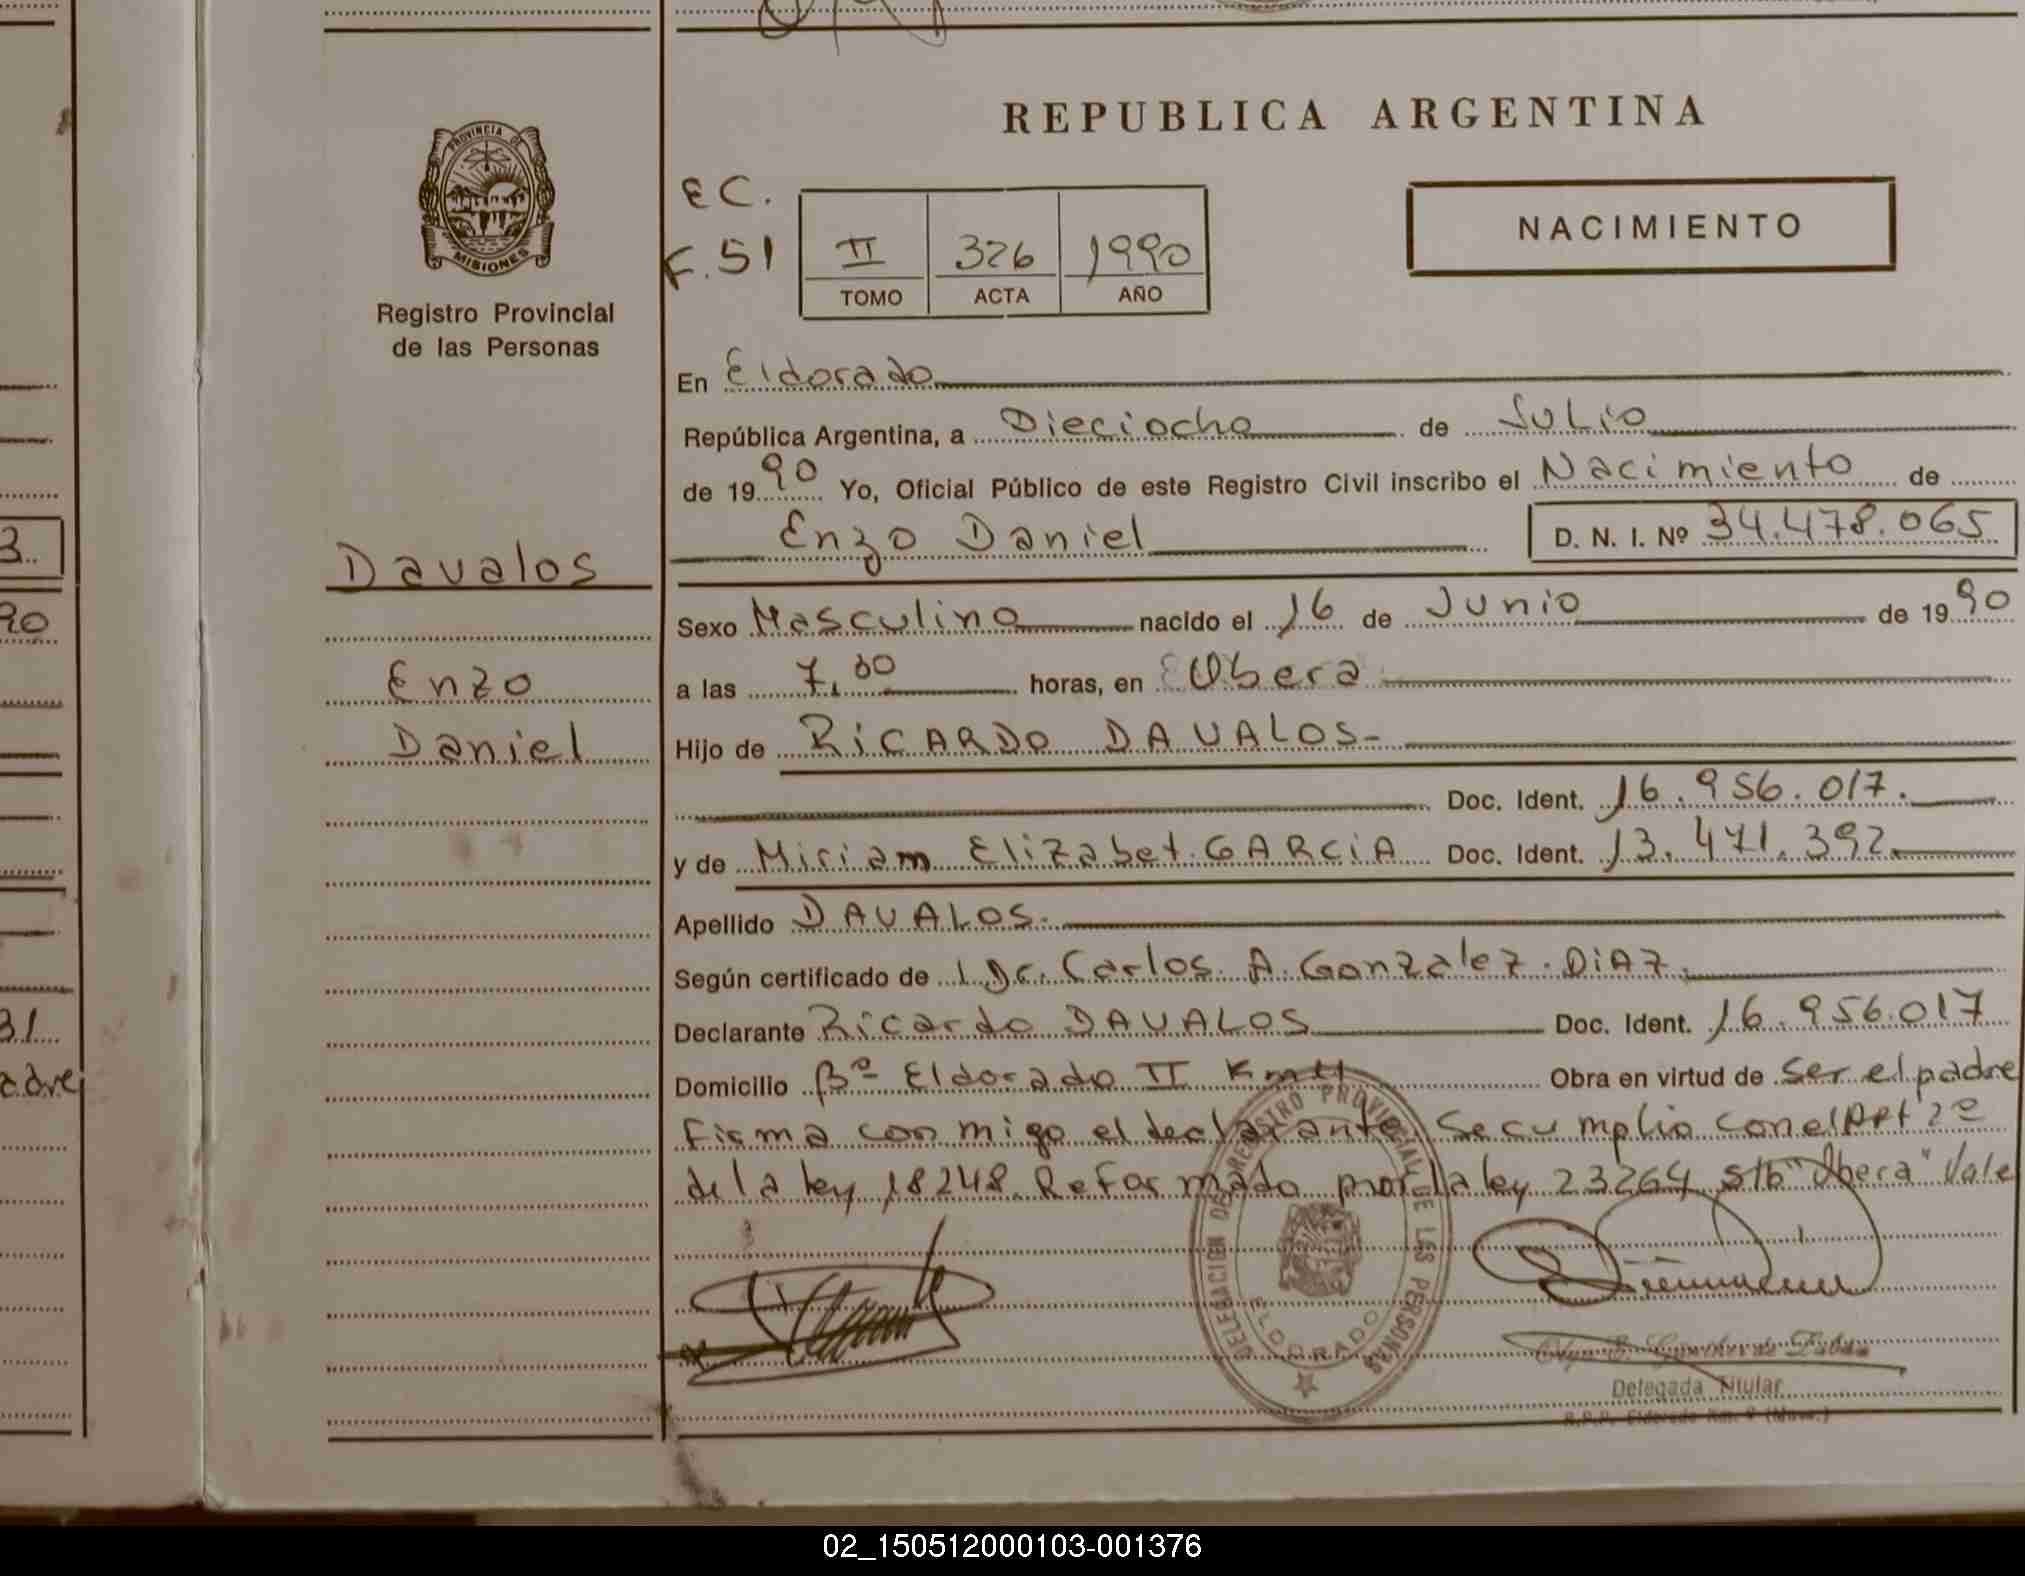 REPUBLICA ARGENTINA
PROVINCIA DE
MISIONES
Registro Provincial
de las Personas
EC.
F. 51
II 326 1990
TOMO ACTA AÑO
NACIMIENTO
En Eldorado
República Argentina, a Dieciocho de Julio
de 1990 Yo, Oficial Público de este Registro Civil inscribo el Nacimiento de
Enzo Daniel D. N. I. Nº 34.478.065
Davalos
Enzo
Daniel
Sexo Masculino nacido el 16 de Junio de 1990
a las 7,00 horas, en Obera
Hijo de RICARDO DAVALOS-
Doc. Ident. 16.956.017.
y de Miriam Elizabet GARCIA Doc. Ident. 13.471.392
Apellido DAVALOS.
Según certificado de Dr. Carlos A. Gonzalez DIAZ
Declarante Ricardo DAVALOS Doc. Ident. 16.956.017
Domicilio Bº Eldorado II Km 11 Obra en virtud de Ser el padre
Firma con migo el declarante Se cumplio con el Art 2º
de la ley 18248 Reformado por la ley 23264 s/b "Obera" Vale
DELEGACION DEL REGISTRO PROVINCIAL DE LAS PERSONAS
ELDORADO
Delegada Titular
R.P.P. Eldorado Km. 9 (Mnes.)
3
90
31
adre
02_150512000103-001376